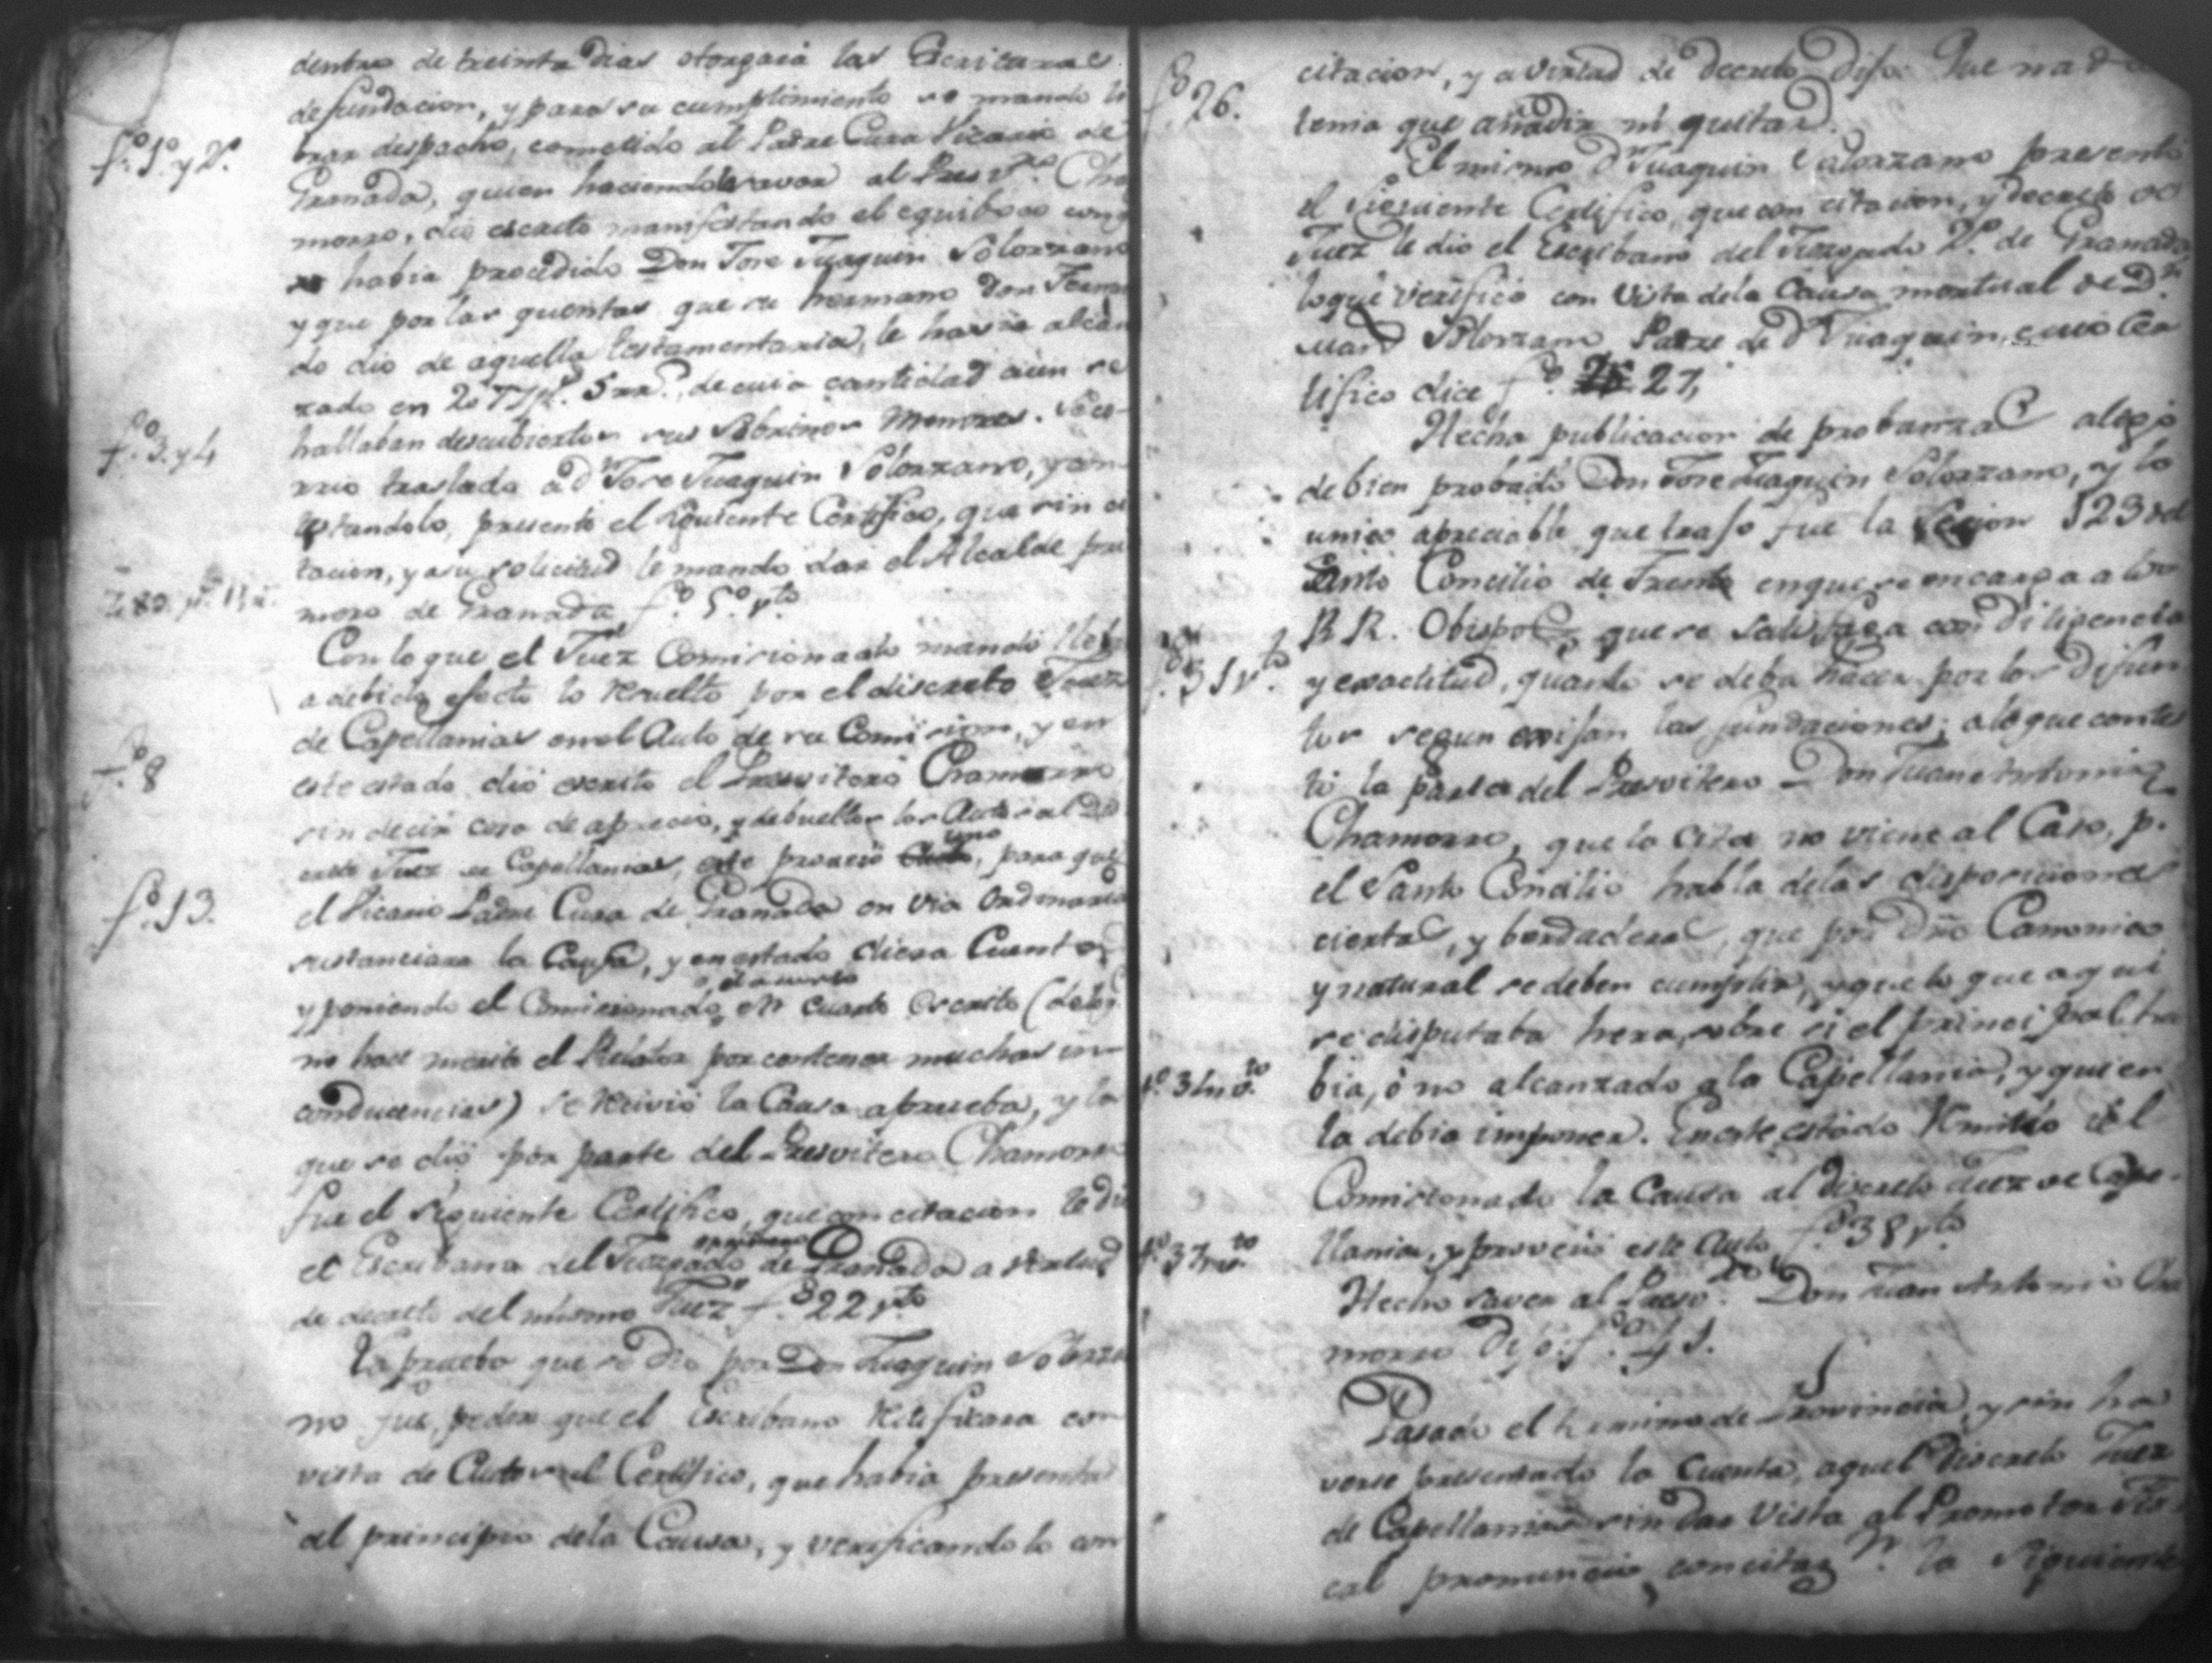 dentro de treinta dias otorgara las Escrituras
de fundacion, y para su cumplimiento se mandó li
brar despacho, cometido al Padre Cura Vicario de
fo. 1o. y 2o.
Granada, quien haciendole savor al Presvro. Cha
morro, dio escrito manifestando el equiboco conq
habia procedido Don Jose Juaquin Solorzano
y que por las quentas que su hermano Don Ferna
do dio de aquella testamentaria, le havia alcan
zado en 2o77ps. 5rrs., de cuia cantidad aun se
fo. 3. y 4
hallaban descubiertos sus sobrinos Menores. Se co
rrio traslado a Dn Jose Juaquin Solorzano, y con
testandolo, presentó el siguiente Certifico, que sin ci
tacion, y a su solicitud le mando dar el Alcalde pri
mero de Granada fo. 5o. vto
Con lo que el Juez Comicionado mandó llebar
a debido efecto lo resuelto por el discreto Juez
de Capellanias en el Auto de su Comision, y en
fo. 8
este estado dió escrito el Presvitero Chamorro
sin decir cosa de aprecio, y debueltos los Autos al dis
creto Juez de Capellanias, este proveió uno, para que
fo. 13.
el Vicario Padre Cura de Granada en via ordinaria
sustanciara la Causa, y en estado diera Cuenta
y poniendo el Comicionado en cuarto escrito (del q
no hace merito el Relator por contener muchas in
conducencias) se recivió la Causa aprueba, y la
que se dió por parte del Presvitero Chamorro
fue el siguiente Certifico, que con citacion le dio
el Escribano del Juzgado de Granada a virtud
de decreto del mismo Juez fo. 22 vto
La prueba que se dio por Don Juaquin Solorza
no fue, pedir que el Escribano retificara con
vista de Autos el Certifico, que habia presentado
al principio de la Causa, y verificandolo con
citacion, y a virtud de decreto Dijo: Que nada
fo. 26.
tenia que añadir ni quitar.
El mismo Dn Juaquin Solorzano presentó
el siguiente Certifico, que con citacion, y decreto del
Juez le dio el Escribano del Juzgado 2o. de Granada
lo que verificó con vista de la Causa mortual de Dn.
Solorzano Padre de Dn Juaquin, cuio Cer
tifico dice fo. 27,
Hecha publicacion de probanzas alegó
de bien probado Don Jose Juaquin Solorzano, y lo
unico apreciable que trajo fue la Secion 523 del
Santo Concilio de Trento en que se encarga a los
R R. Obispos, que se satisfaga con diligencia
fo. 31 vto.
y exactitud, quanto se deba hacer por los difun
tos segun exijan las fundaciones; a lo que contes
tó la parte del Presvitero Don Juan Antonio
Chamorro, que la cita no viene al Caso, p.
el Santo Concilio habla de las disposiciones
ciertas, y berdaderas, que por Dro Canonico
y natural se deben cumplir, y que lo que aqui
se disputaba hera, sobre si el principal ha
fo. 34 vto.
bia, ó no alcanzado a la Capellania, y quien
la debia imponer. En este estado remitió el
Comicionado la Causa al discreto Juez de Cape
fo. 37 vto.
llanias, y proveió este Auto fo. 38 vto
Hecho saver al Presvro. Don Juan Antonio Cha
morro Dijo: fo. 41.
Pasado el termino de Provincia, y sin ha
verse presentado la cuenta, aquel discreto Juez
de Capellanias sin dar vista al Promotor Fis
cal pronunció, con citazn. la siguiente